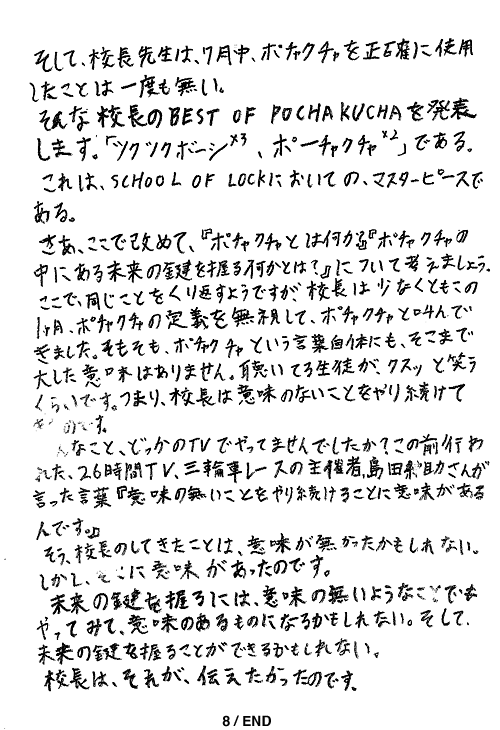 そして、校長先生は、7月中、ポチャクチャを正確に使用
したことは一度も無い。
そんな校長のBEST OF POCHAKUCHAを発表
します。「ツクツクボーシ×3、ポーチャクチャ×2」である。
これは、SCHOOL OF LOCKにおいての、マスターピースで
ある。
さあ、ここで改めて、『ポチャクチャとは何か』『ポチャクチャの
中にある未来の鍵を握る何かとは?』について考えましょう。
ここで、同じことをくり返すようですが、校長は少なくともこの
1ヶ月、ポチャクチャの定義を無視して、ポチャクチャと叫んで
きました。そもそも、ポチャクチャという言葉自体にも、そこまで
大した意味はありません。聴いてる生徒が、クスッと笑う
くらいです。つまり、校長は意味のないことをやり続けて
のです。
なこと、どっかのTVでやってませんでしたか?この前行わ
れた、26時間TV、三輪車レースの主催者、島田紳助さんが
言った言葉『意味の無いことをやり続けることに意味がある
んです。』
そう、校長のしてきたことは、意味が無かったかもしれない。
しかし、そこに意味があったのです。
未来の鍵を握るには、意味の無いようなことでも
やってみて、意味のあるものになるかもしれない。そして、
未来の鍵を握ることができるかもしれない。
校長は、それが、伝えたかったのです。
8 / END